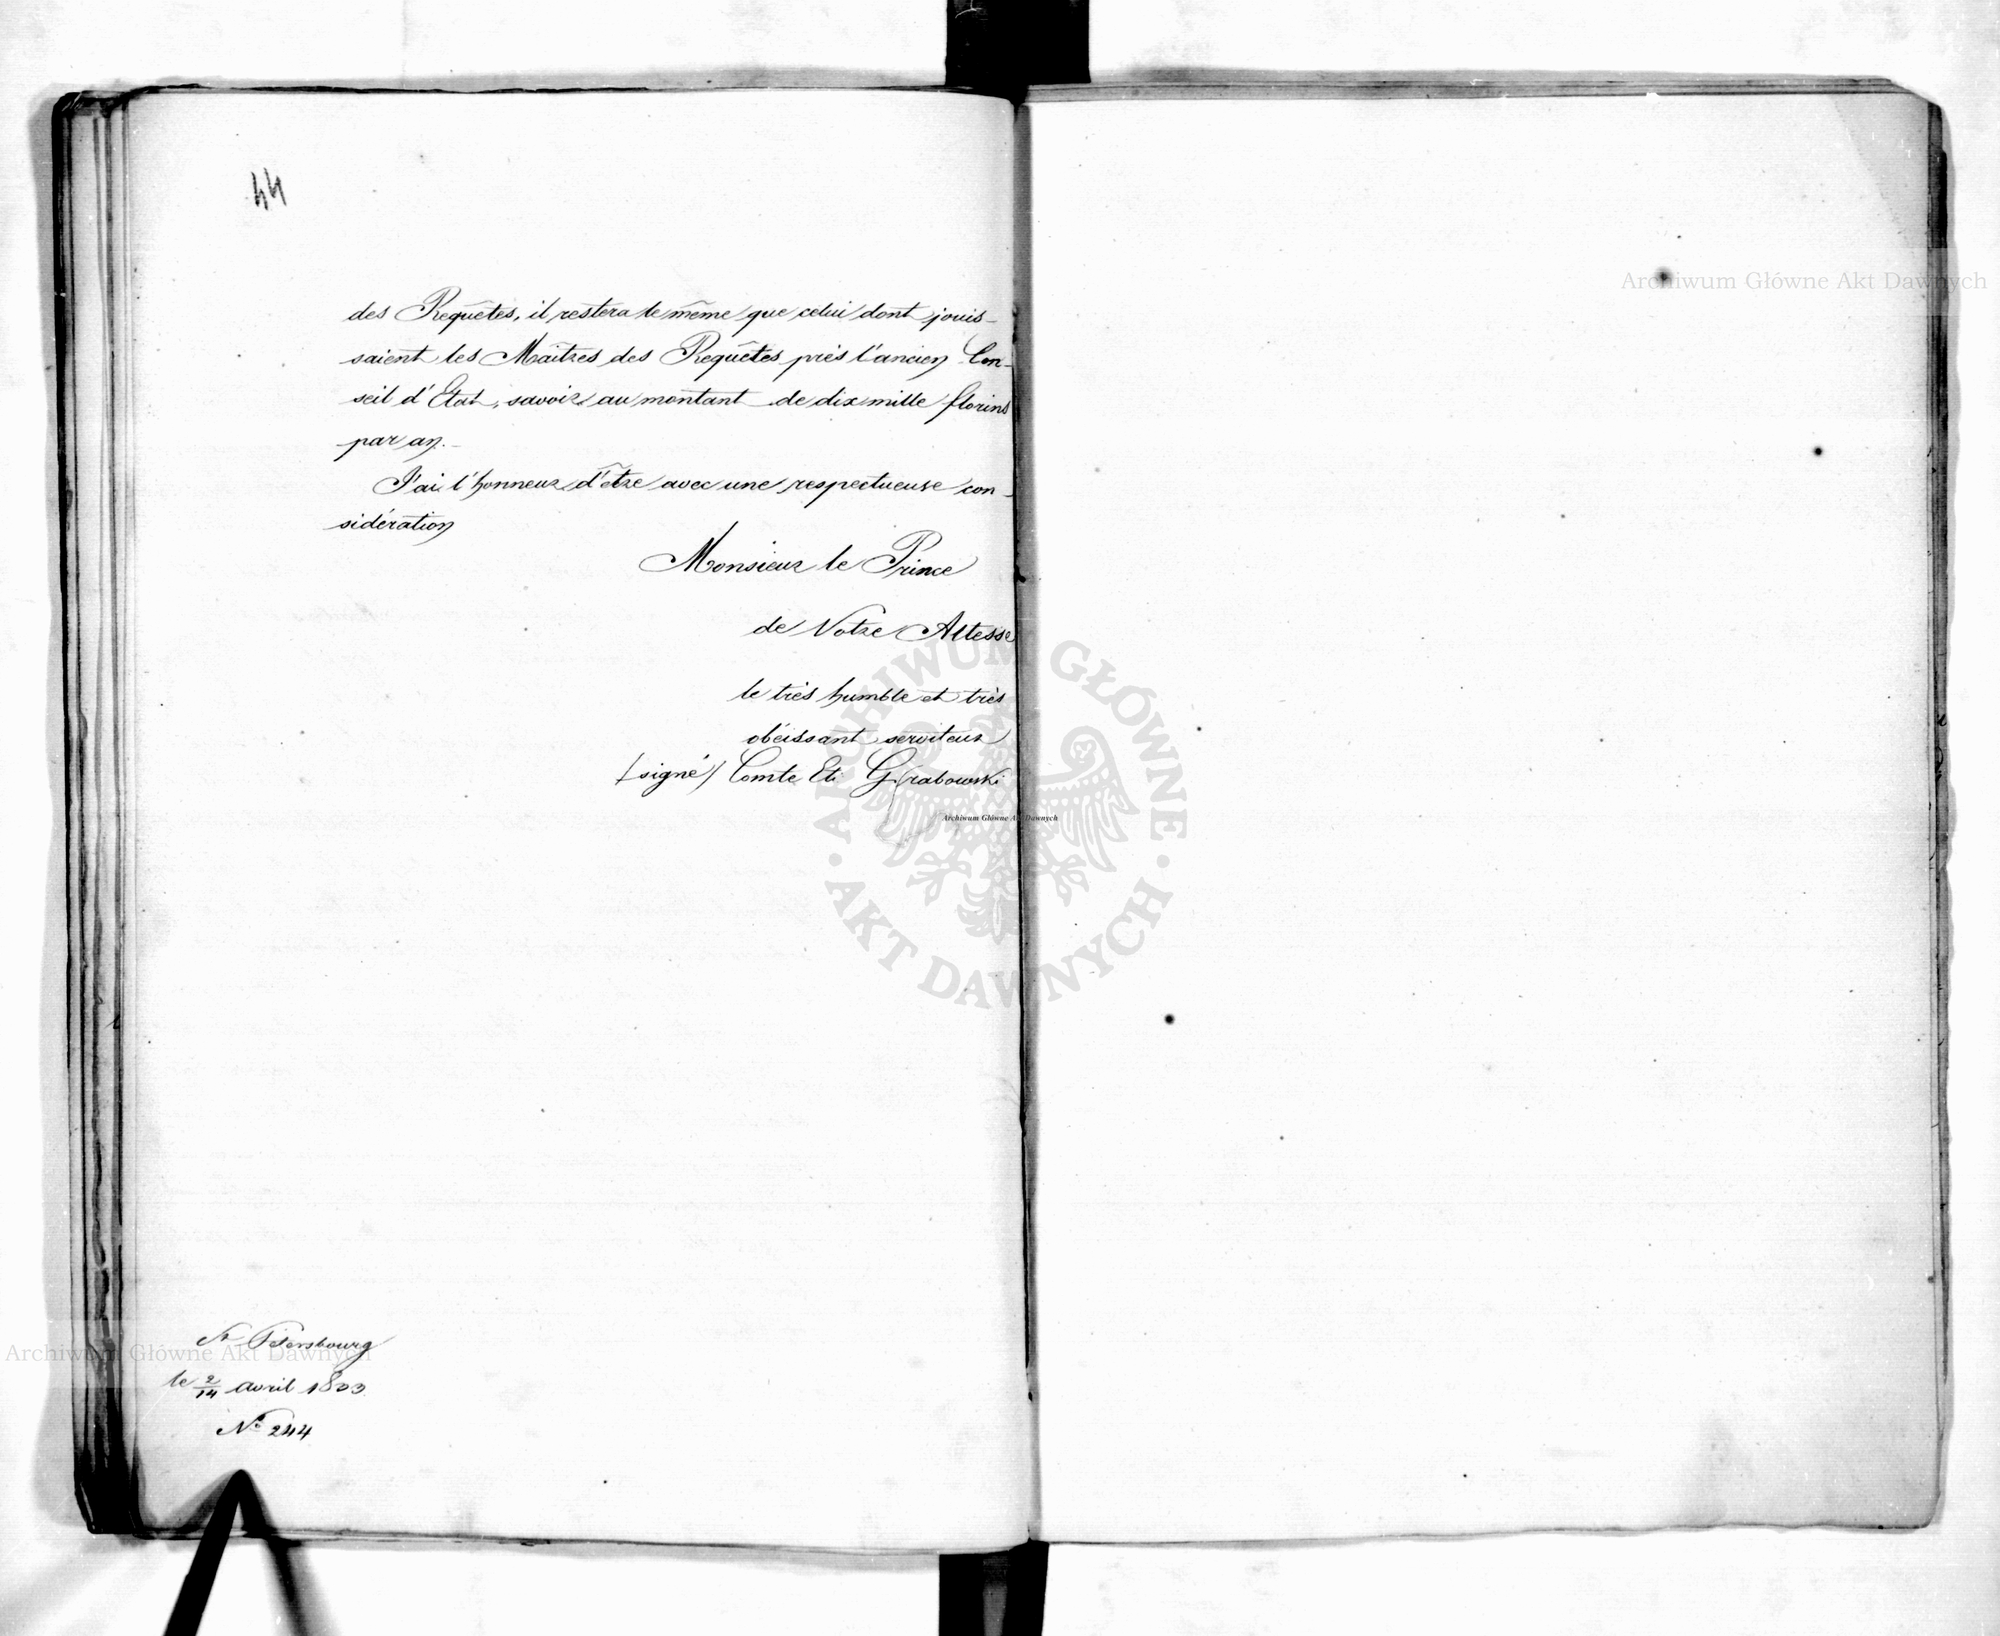 44
des Requêtes, il restera le même que celui dont jouis-
saient les Maîtres des Requêtes près l'ancien Con-
seil d'Etat, savoir au montant de dix mille florins
par an.
J'ai l'honneur d'être avec une respectueuse con-
sidération
Monsieur le Prince
de Votre Altesse
le très humble et très
obéissant serviteur
/signé/ Comte Et: Grabowski
St Pétersbourg
le 2/14 avril 1833
N° 244
Archiwum Główne Akt Dawnych
Archiwum Główne Akt Dawnych
Archiwum Główne Akt Dawnych
ARCHIWUM GŁÓWNE · AKT DAWNYCH ·